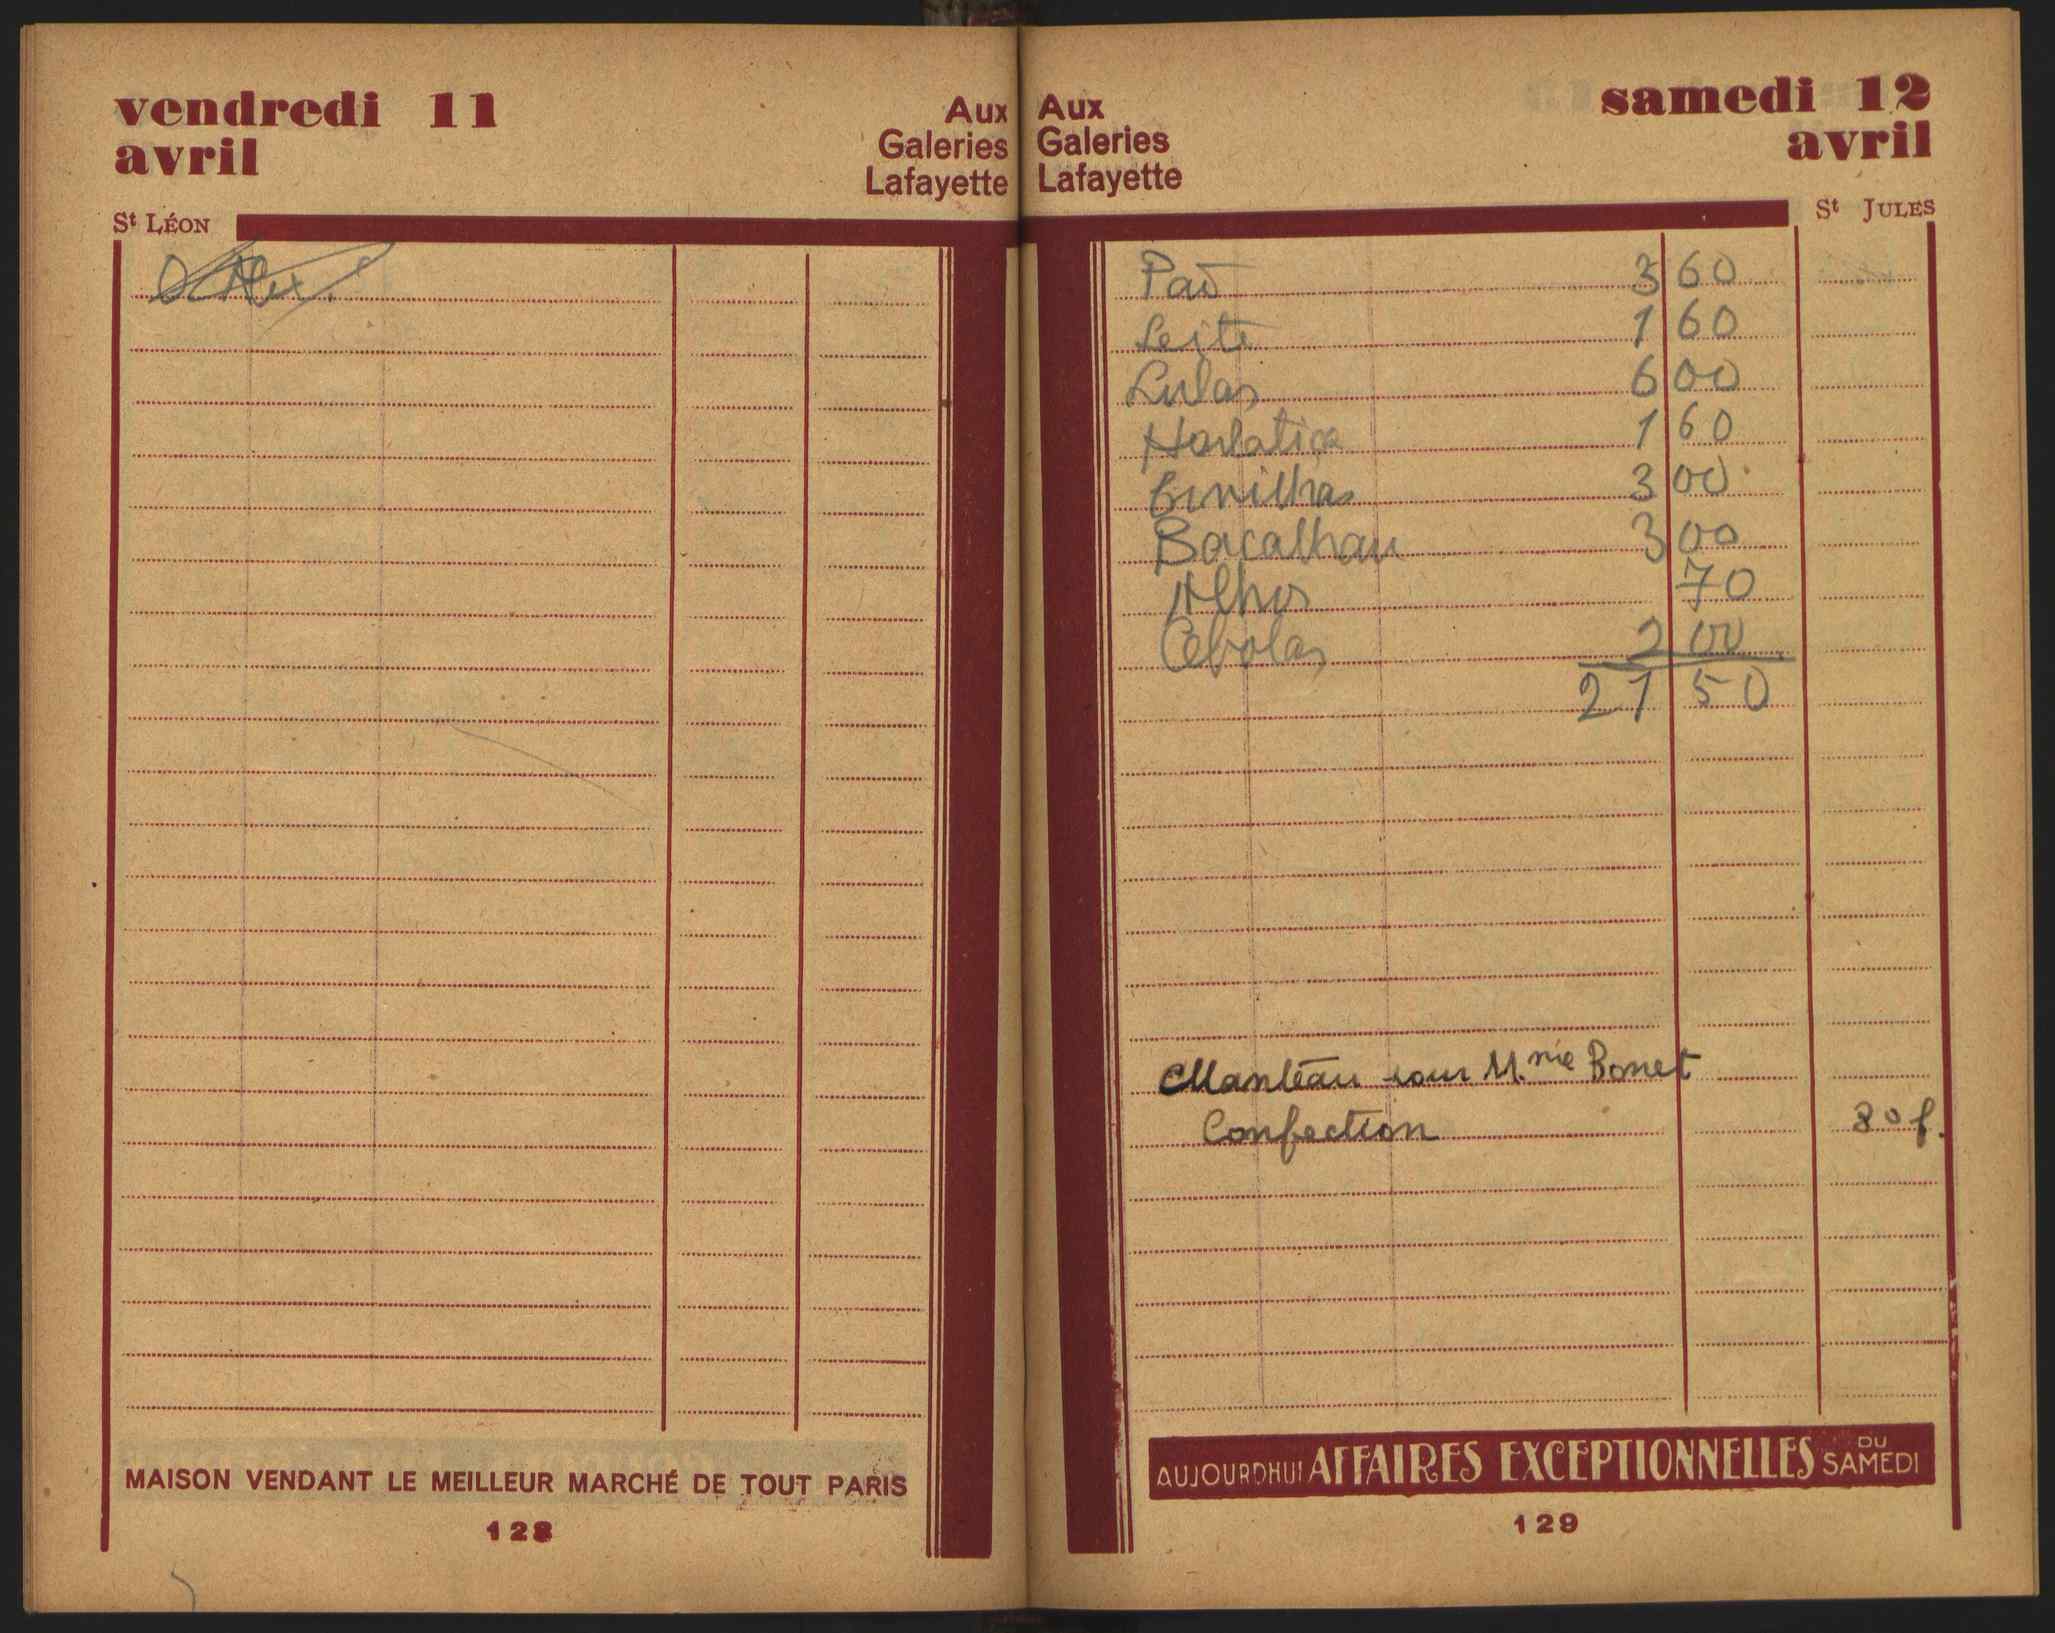 vendredi 11
avril
Aux
Galeries
Lafayette
St LÉON
MAISON VENDANT LE MEILLEUR MARCHÉ DE TOUT PARIS
128
Aux
Galeries
Lafayette
samedi 12
avril
St JULES
Paõ 3 60
Leite 1 60
Lulas 6 00
Hortaliça 1 60
Ervilhas 3 00
Bacalhau 3 00
Alhos 70
Cebolas 2 00
21 50
Manteau pour M.me Bonet
Confection 80 f.
AUJOURDHUI AFFAIRES EXCEPTIONNELLES DU SAMEDI
129